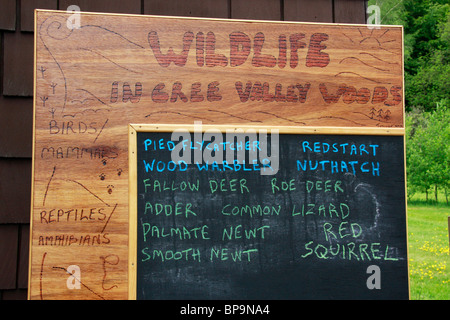 WILDLIFE
IN CREE VALLEY WOODS
BIRDS
MAMMALS
REPTILES
AMPHIBIANS
PIED FLYCATCHER REDSTART
WOOD WARBLER NUTHATCH
FALLOW DEER ROE DEER
ADDER COMMON LIZARD
PALMATE NEWT RED
SMOOTH NEWT SQUIRREL
alamy
Image ID: BP9NA4
www.alamy.com